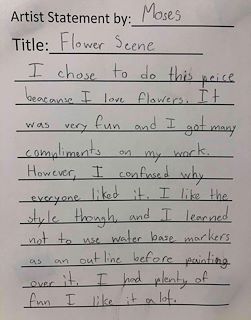 Artist Statement by: Moses
Title: Flower Scene
I chose to do this peice
beacause I love flowers. It
was very fun and I got many
compliments on my work.
However, I confused why
everyone liked it. I like the
style though, and I learned
not to use water base markers
as an outline before painting
over it. I had plenty of
fun I like it a lot.